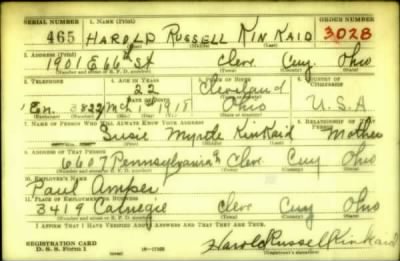 SERIAL NUMBER 1. NAME (Print) ORDER NUMBER
465 HAROLD RUSSELL KINKAID 3028
(First) (Middle) (Last)
2. ADDRESS (Print)
1901 E 66th St Cleve. Cuy. Ohio
(Number and street or R. F. D. number) (Town) (County) (State)
3. TELEPHONE 4. AGE IN YEARS 5. PLACE OF BIRTH 6. COUNTRY OF CITIZENSHIP
22 Cleveland
DATE OF BIRTH
En. 1918 Ohio U.S.A
7. NAME OF PERSON WHO WILL ALWAYS KNOW YOUR ADDRESS 8. RELATIONSHIP OF THAT PERSON
Susie Myrtle Kinkaid Mother
9. ADDRESS OF THAT PERSON
6607 Pennsylvania Cleve Cuy Ohio
(Number and street or R. F. D. number) (Town) (County) (State)
10. EMPLOYER'S NAME
Paul
11. PLACE OF EMPLOYMENT OR BUSINESS
3419 Carnegie Cleve Cuy Ohio
(Number and street or R. F. D. number) (Town) (County) (State)
I AFFIRM THAT I HAVE VERIFIED ABOVE ANSWERS AND THAT THEY ARE TRUE.
REGISTRATION CARD
D. S. S. Form 1 Harold Russel Kinkaid